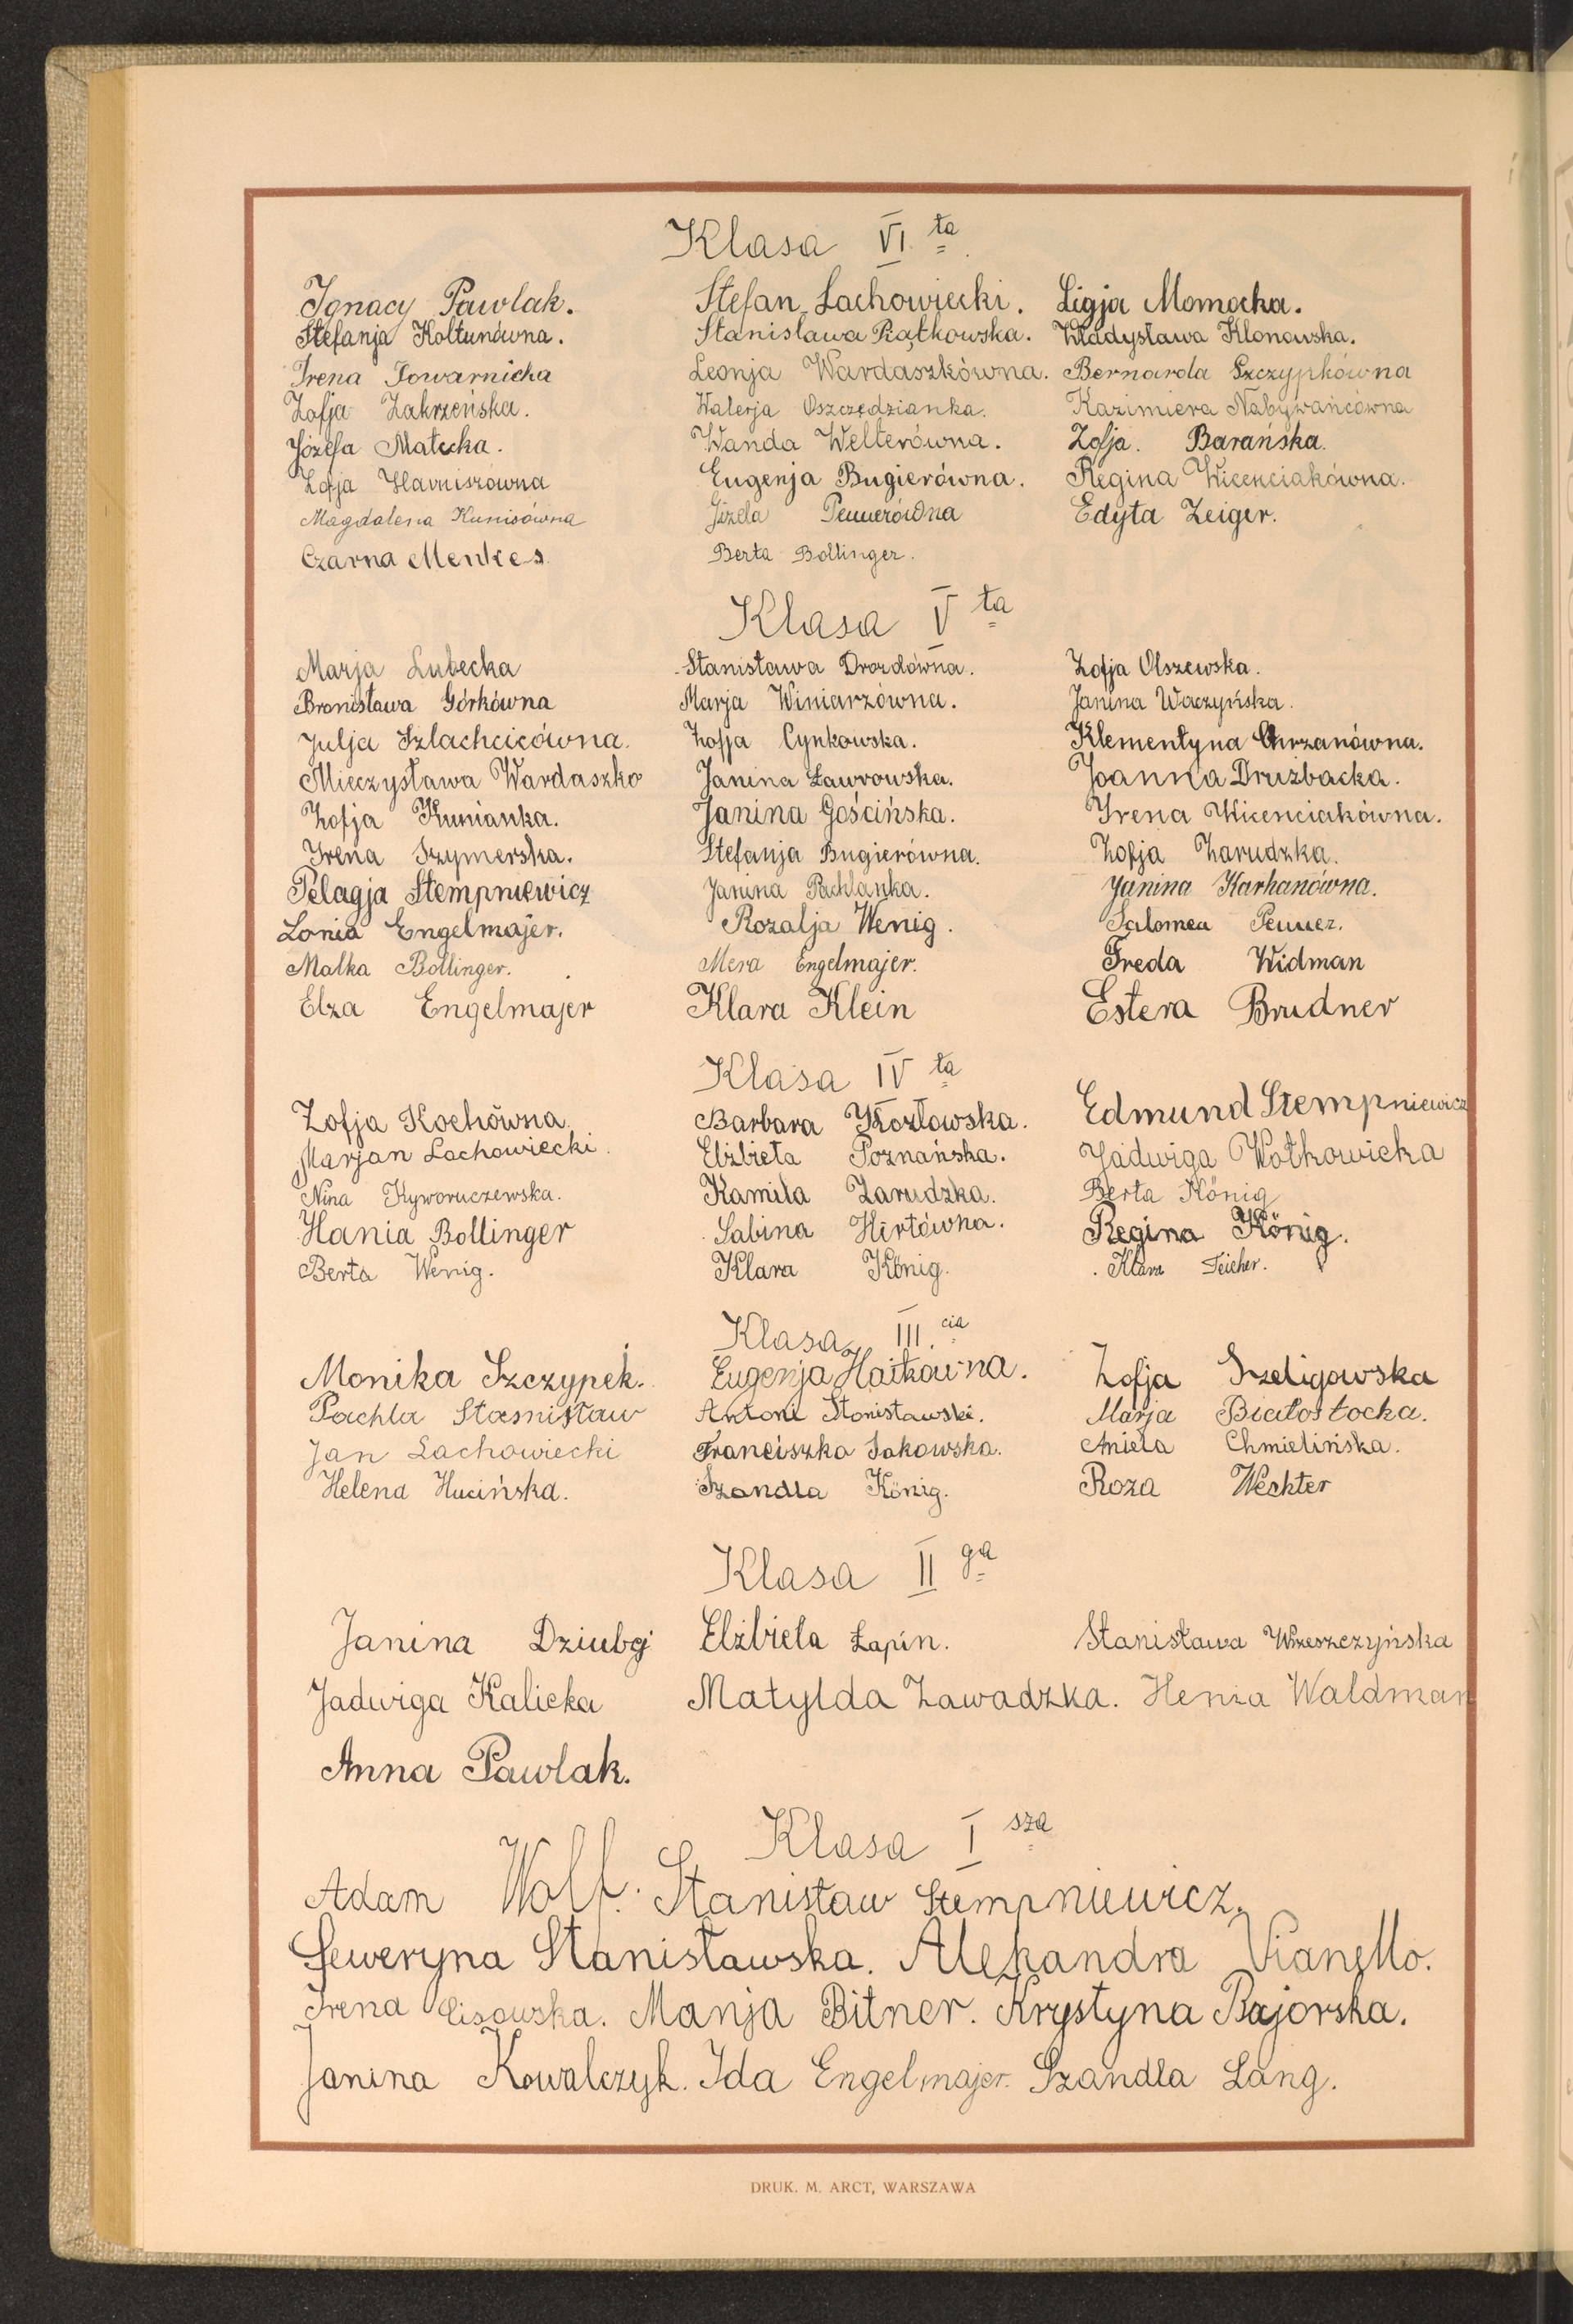 Klasa VI ta
Ignacy Pawlak. Stefan Lachowiecki. Ligja Momocka.
Stefanja Kołtunówna. Stanisława Piątkowska. Władysława Klonowska.
Irena Towarnicka Leonja Wardaszkówna. Bernarda Szczypkówna
Zofja Zakrzeńska. Walerja Oszczędzianka. Kazimiera Nabywańcówna
Józefa Małecka. Wanda Welterówna. Zofja. Barańska.
Zofja Hawniszówna Eugenja Bugierówna. Regina Wicenciakówna.
Magdalena Kunisówna Gizela Pennerówna Edyta Zeiger.
Czarna Menkes. Berta Bollinger.
Klasa V ta
Marja Lubecka Stanisława Drozdówna. Zofja Olszewska.
Bronisława Górkówna Marja Winiarzówna. Janina Waczyńska.
Julja Szlachcicówna. Zofja Cynkowska. Klementyna Chrzanówna.
Mieczysława Wardaszko Janina Ławrowska. Joanna Drużbacka.
Zofja Kunianka. Janina Gościńska. Irena Wicenciakówna.
Irena Szymerska. Stefanja Bugierówna. Zofja Zarudzka.
Pelagja Stempniewicz Janina Pachlanka. Janina Karhanówna.
Lonia Engelmajer. Rozalja Wenig. Salomea Penner.
Malka Bollinger. Mera Engelmajer. Freda Widman
Elza Engelmajer Klara Klein Estera Brudner
Klasa IV ta
Zofja Kochówna. Barbara Kozłowska. Edmund Stempniewicz
Marjan Lachowiecki. Elżbieta Poznańska. Jadwiga Wołkowicka
Nina Kyworuczewska. Kamila Zarudzka. Berta König
Hania Bollinger Sabina Hirtówna. Regina König.
Berta Wenig. Klara König. Klara Teicher.
Klasa III. cia
Monika Szczypek. Eugenja Hałkówna. Zofja Szeligowska
Pachla Stasnisław Antoni Stonisławski. Marja Białostocka.
Jan Lachowiecki Franciszka Sakowska. Aniela Chmielińska.
Helena Hucińska. Szandla König. Roza Wechter
Klasa II ga
Janina Dziubej Elżbieta Łapin. Stanisława Wrzeszczyńska
Jadwiga Kalicka Matylda Zawadzka. Henia Waldman
Anna Pawlak.
Klasa I sza
Adam Wolf. Stanisław Stempniewicz.
Seweryna Stanisławska. Alekandra Vianello.
Irena Lisowska. Manja Bitner. Krystyna Bajorska.
Janina Kowalczyk. Ida Engelmajer. Szandla Lang.
DRUK. M. ARCT, WARSZAWA